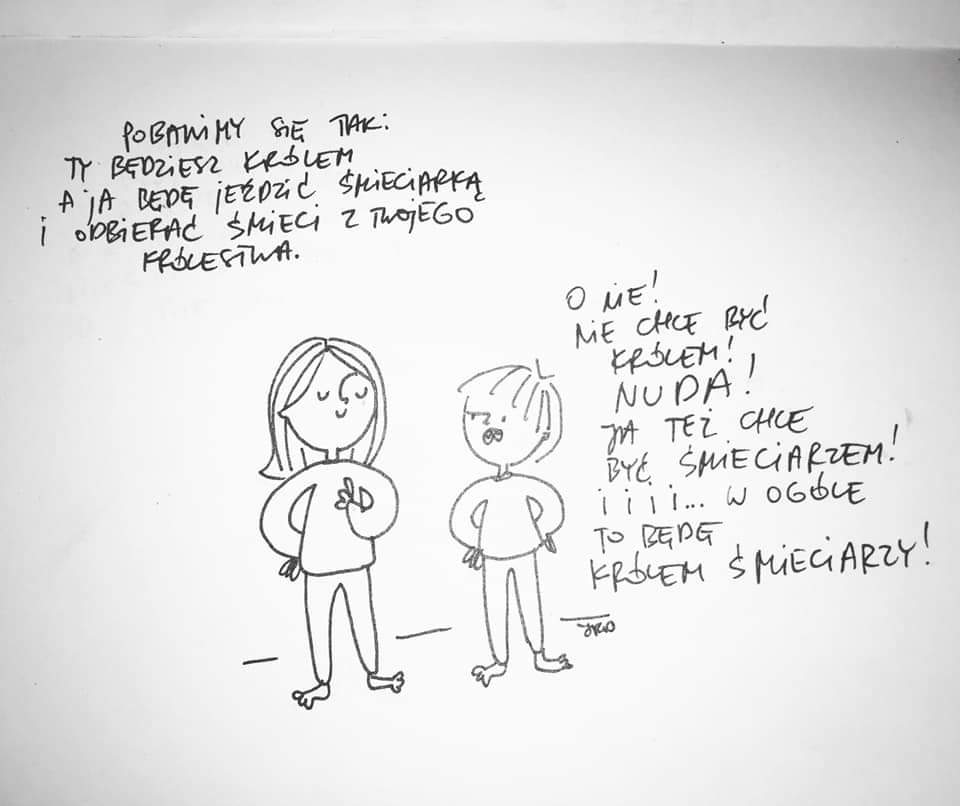 POBAWIMY SIĘ TAK:
TY BĘDZIESZ KRÓLEM
A JA BĘDĘ JEŹDZIĆ ŚMIECIARKĄ
I ODBIERAĆ ŚMIECI Z TWOJEGO
KRÓLESTWA.
O NIE!
NIE CHCE BYĆ
KRÓLEM!
NUDA!
JA TEŻ CHCE
BYĆ ŚMIECIARZEM!
i i i i... W OGÓLE
TO BĘDĘ
KRÓLEM ŚMIECIARZY!